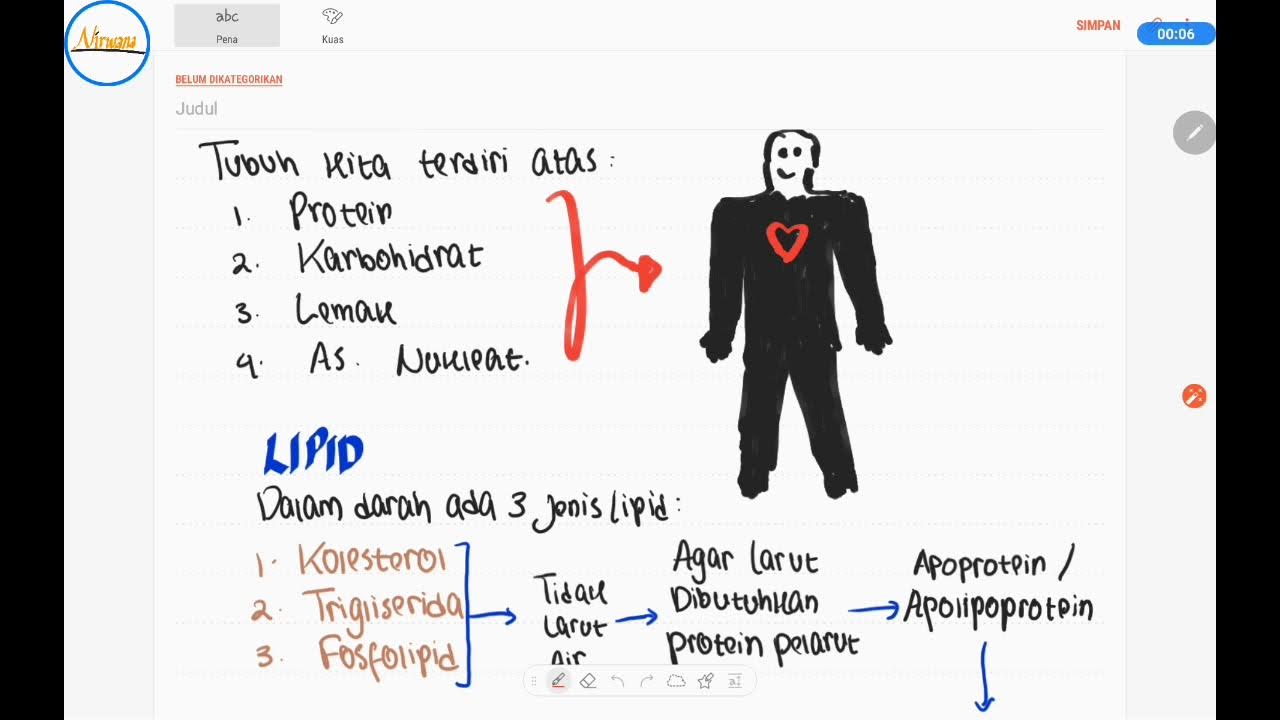 Nirwana
abc
Pena
Kuas
SIMPAN
00:06
BELUM DIKATEGORIKAN
Judul
Tubuh kita terdiri atas :
1. Protein
2. Karbohidrat
3. Lemak
4. As. Nukleat.
LIPID
Dalam darah ada 3 jenis lipid :
1. Kolesterol
2. Trigliserida
3. Fosfolipid
Tidak
larut
air
Agar larut
Dibutuhkan
protein pelarut
Apoprotein /
Apolipoprotein